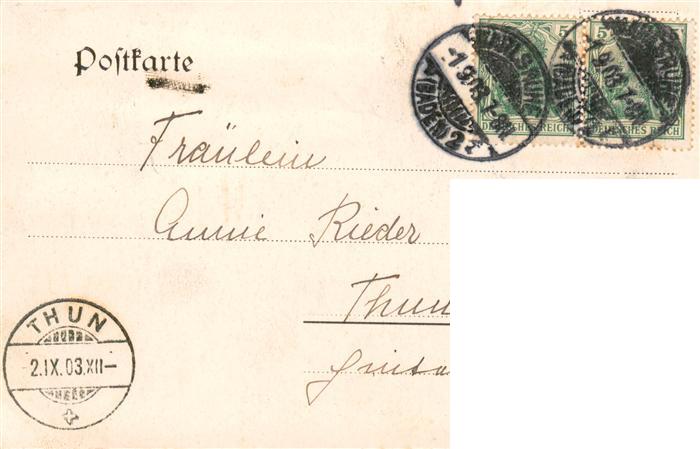 Postkarte
5 5
KARLSRUHE
-1.9.03.1-8N.
(BADEN) 2
DEUTSCHES REICH DEUTSCHES REICH
Fräulein
Annie Rieder
Thun
THUN
2.IX.03.XII-